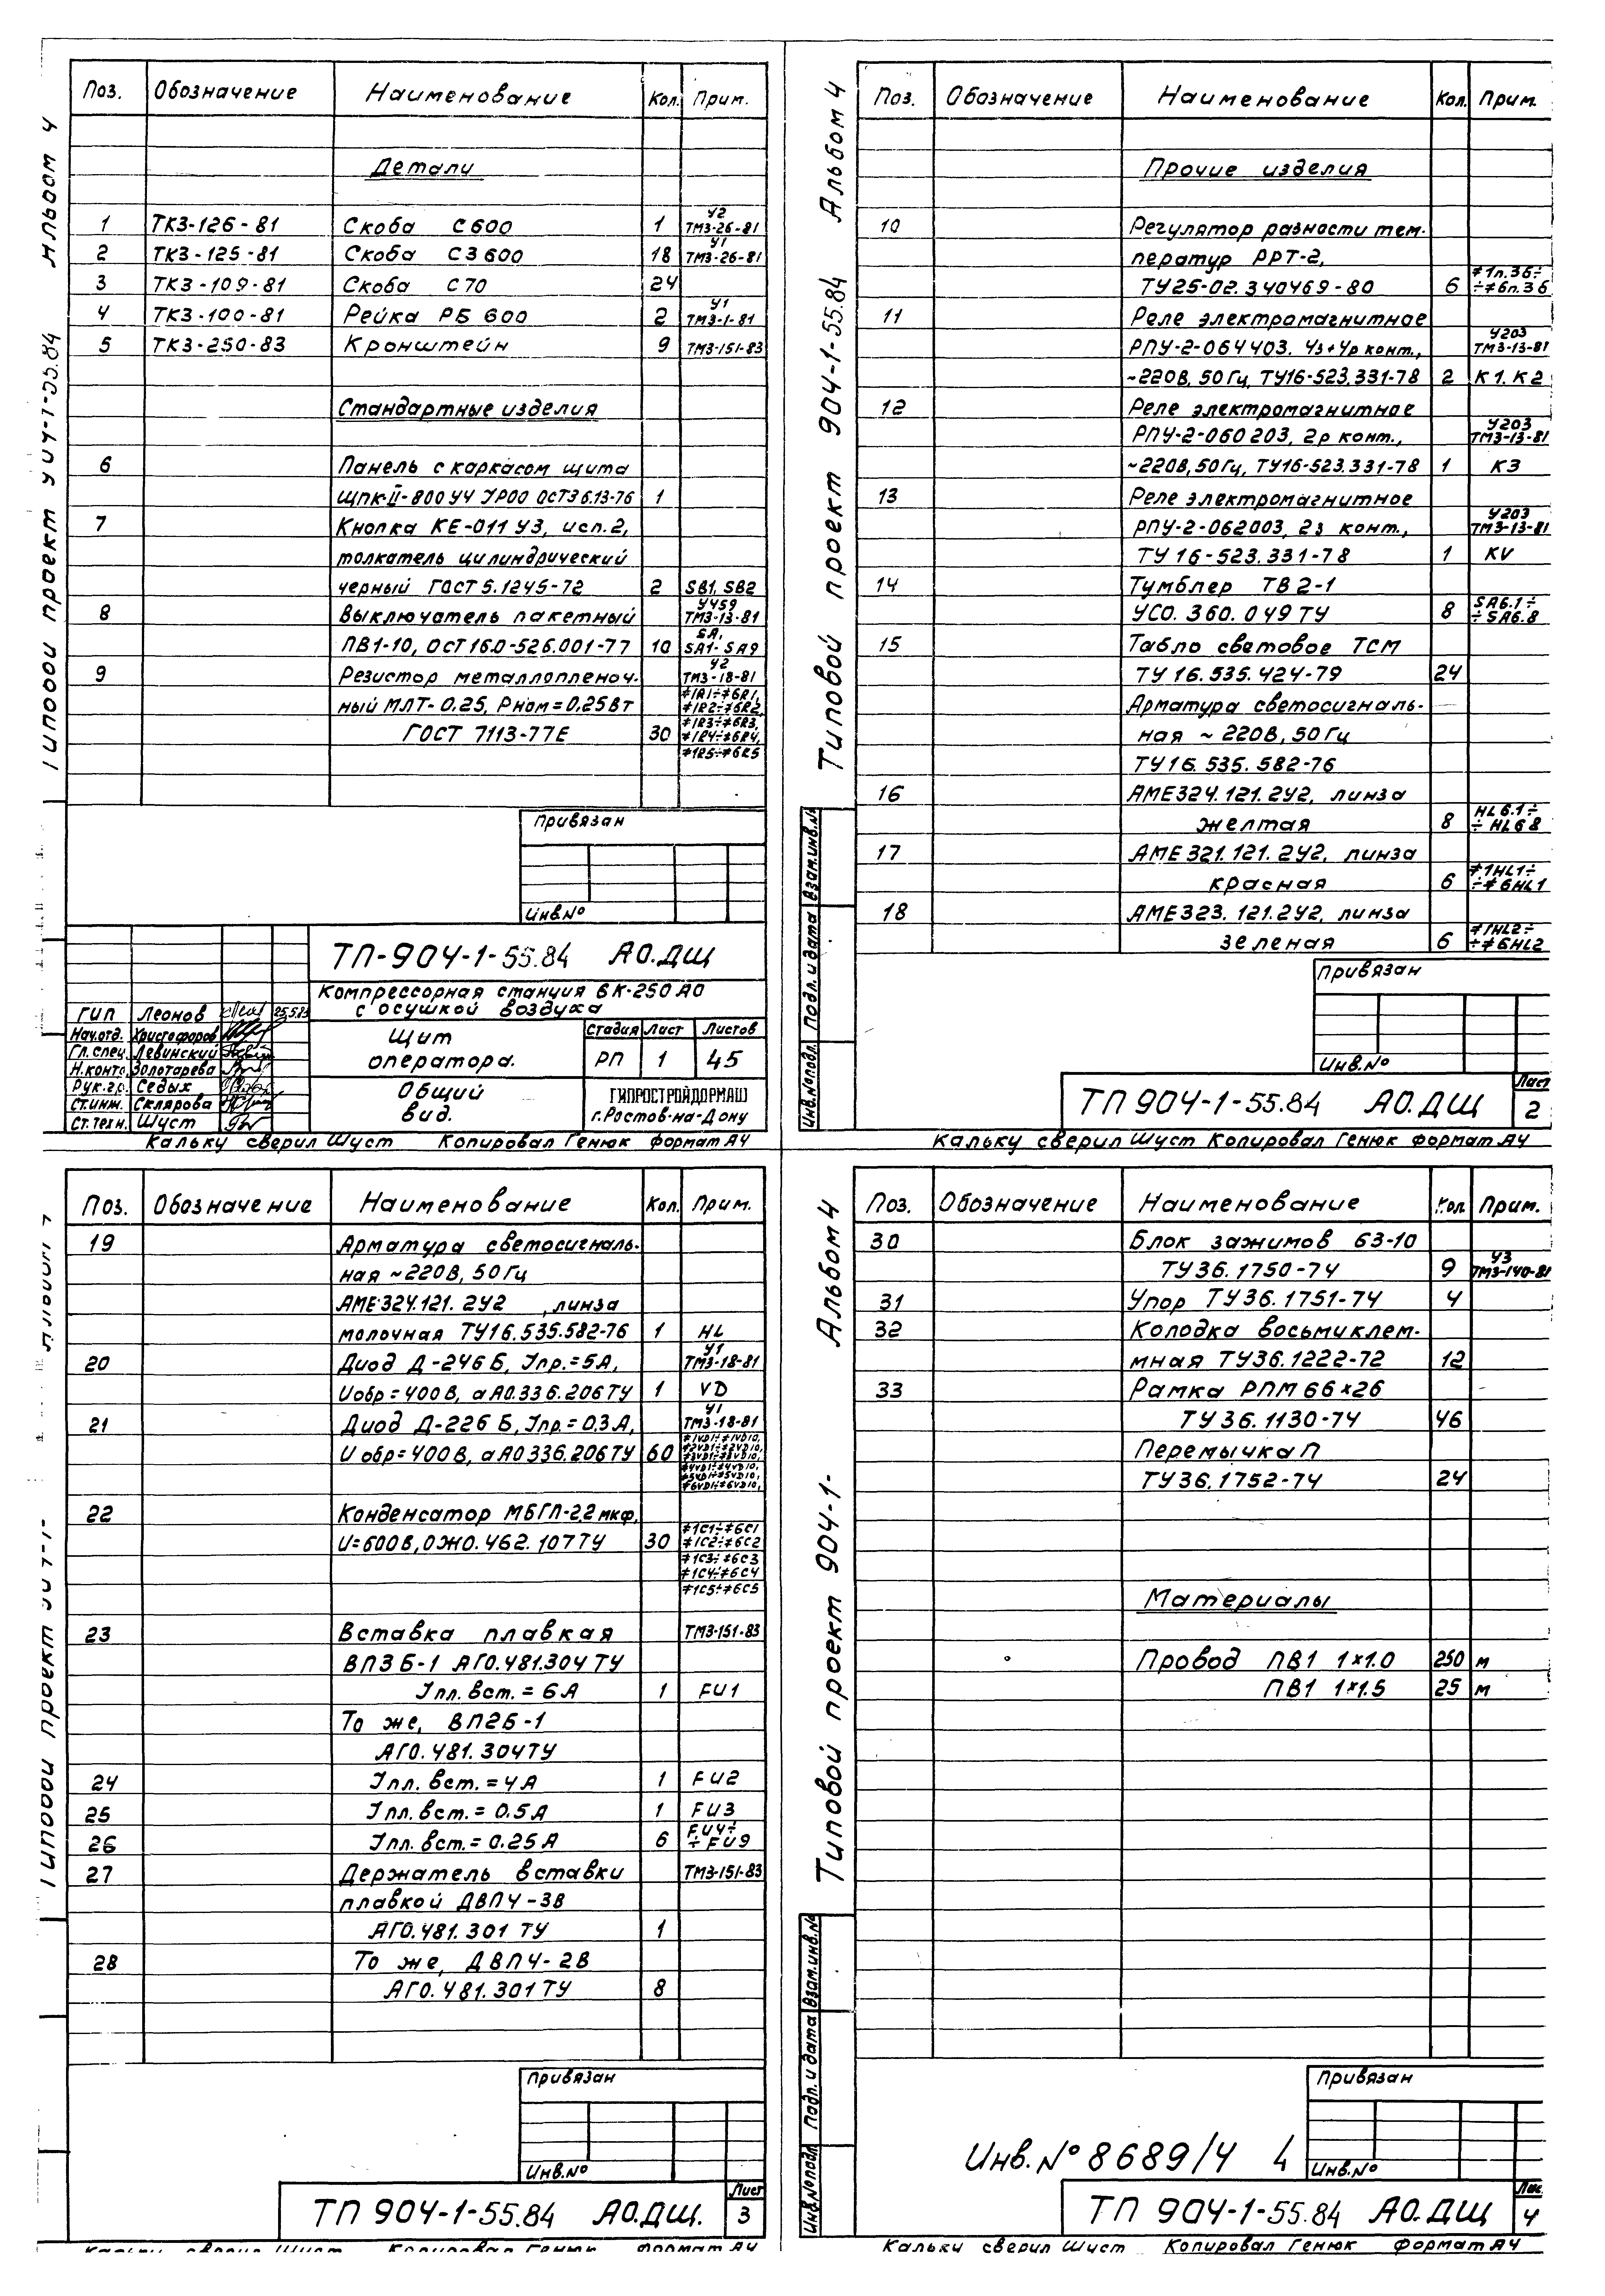 Альбом 4
Типовой проект 904-1-55.84
Поз. Обозначение Наименование Кол. Прим.
Детали
1 ТК3-126-81 Скоба С600 1 У2 ТМ3-26-81
2 ТК3-125-81 Скоба С3600 18 У1 ТМ3-26-81
3 ТК3-109-81 Скоба С70 24
4 ТК3-100-81 Рейка РБ 600 2 У1 ТМ3-1-81
5 ТК3-250-83 Кронштейн 9 ТМ3-151-83
Стандартные изделия
6 Панель с каркасом щита
ЩПК-II-800 У4 IР00 ОСТ36.13-76 1
7 Кнопка КЕ-011 У3, исп.2,
толкатель цилиндрический
черный ГОСТ 5.1245-72 2 SB1, SB2
8 Выключатель пакетный У459 ТМ3-13-81
ПВ1-10, ОСТ 16.0-526.001-77 10 SA, SA1-SA9
9 Резистор металлопленоч- У2 ТМ3-18-81
ный МЛТ-0.25, Рном=0,25Вт ≠1R1÷≠6R1, ≠1R2÷≠6R2,
ГОСТ 7113-77Е 30 ≠1R3÷≠6R3, ≠1R4÷≠6R4,
≠1R5÷≠6R5
Привязан
Инв.№
ТП-904-1-55.84 АО.ДЩ
Компрессорная станция 6К-250 АО
с осушкой воздуха
ГИП Леонов 25.5.83
Нач.отд. Христофоров
Гл.спец. Левинский
Н.контр. Золотарева
Рук.гр. Седых
Ст.инж. Склярова
Ст.техн. Шуст
Щит
оператора.
Стадия Лист Листов
РП 1 45
Общий
вид.
ГИПРОСТРОЙДОРМАШ
г.Ростов-на-Дону
Кальку сверил Шуст Копировал Генюк формат А4
Альбом 4
Типовой проект 904-1-55.84
Поз. Обозначение Наименование Кол. Прим.
Прочие изделия
10 Регулятор разности тем-
ператур РРТ-2,
ТУ25-02.340469-80 6 ≠1п.36÷ ÷≠6п.36
11 Реле электромагнитное
РПУ-2-064403. 4з+4р конт., У203 ТМ3-13-81
~220В, 50Гц, ТУ16-523.331-78 2 К1. К2
12 Реле электромагнитное
РПУ-2-060203, 2р конт., У203 ТМ3-13-81
~220В, 50Гц, ТУ16-523.331-78 1 К3
13 Реле электромагнитное
РПУ-2-062003, 2з конт., У203 ТМ3-13-81
ТУ 16-523.331-78 1 KV
14 Тумблер ТВ2-1
УСО.360.049 ТУ 8 SA6.1÷ ÷SA6.8
15 Табло световое ТСМ
ТУ 16.535.424-79 24
Арматура светосигналь-
ная ~220В, 50Гц
ТУ16.535.582-76
16 АМЕ324.121.2У2, линза
желтая 8 HL6.1÷ ÷HL6 8
17 АМЕ321.121.2У2, линза
красная 6 ≠1HL1÷ ÷≠6HL1
18 АМЕ323.121.2У2, линза
зеленая 6 ≠1HL2÷ ÷≠6HL2
Взам.инв.№
Подп. и дата
Инв.№подл.
Привязан
Инв.№
ТП 904-1-55.84 АО.ДЩ
Лист
2
Кальку сверил Шуст Копировал Генюк формат А4
Поз. Обозначение Наименование Кол. Прим.
19 Арматура светосигналь-
ная ~220В, 50Гц
АМЕ324.121.2У2 ,линза
молочная ТУ16.535.582-76 1 HL
20 Диод Д-246Б, Iпр.=5А, У1 ТМ3-18-81
Uобр=400В, аА0.336.206ТУ 1 VD
21 Диод Д-226 Б, Iпр.=0.3А, У1 ТМ3-18-81
Uобр=400В, аА0336.206ТУ 60 ≠1VD1÷≠1VD10, ≠2VD1÷≠2VD10, ≠3VD1÷≠3VD10,
≠4VD1÷≠4VD10, ≠5VD1÷≠5VD10, ≠6VD1÷≠6VD10,
22 Конденсатор МБГП-2,2мкф,
U=600В, ОЖ0.462.107ТУ 30 ≠1С1÷≠6С1 ≠1С2÷≠6С2
≠1С3÷≠6С3 ≠1С4÷≠6С4
≠1С5÷≠6С5
23 Вставка плавкая ТМ3-151-83
ВП3Б-1 АГ0.481.304 ТУ
Iпл. вст.=6А 1 FU1
То же, ВП2Б-1
АГ0.481.304ТУ
24 Iпл. вст.=4А 1 FU2
25 Iпл. вст.=0.5А 1 FU3
26 Iпл. вст.=0.25А 6 FU4÷ ÷FU9
27 Держатель вставки ТМ3-151-83
плавкой ДВП4-3В
АГ0.481.301 ТУ 1
28 То же, ДВП4-2В
АГ0.481.301ТУ 8
Привязан
Инв.№
ТП 904-1-55.84 АО.ДЩ.
Лист
3
Кальку сверил Шуст Копировал Генюк формат А4
Альбом 4
Типовой проект 904-1-
Поз. Обозначение Наименование Кол. Прим.
30 Блок зажимов БЗ-10
ТУ36.1750-74 9 У3 ТМ3-140-81
31 Упор ТУ36.1751-74 4
32 Колодка восьмиклем-
мная ТУ36.1222-72 12
33 Рамка РПМ 66×26
ТУ36.1130-74 46
Перемычка П
ТУ36.1752-74 24
Материалы
Провод ПВ1 1×1.0 250 м
ПВ1 1×1.5 25 м
Взам.инв.№
Подп. и дата
Инв.№подл.
Привязан
Инв.№
Инв.№8689/4 4
ТП 904-1-55.84 АО.ДЩ
4
Кальку сверил Шуст Копировал Генюк формат А4